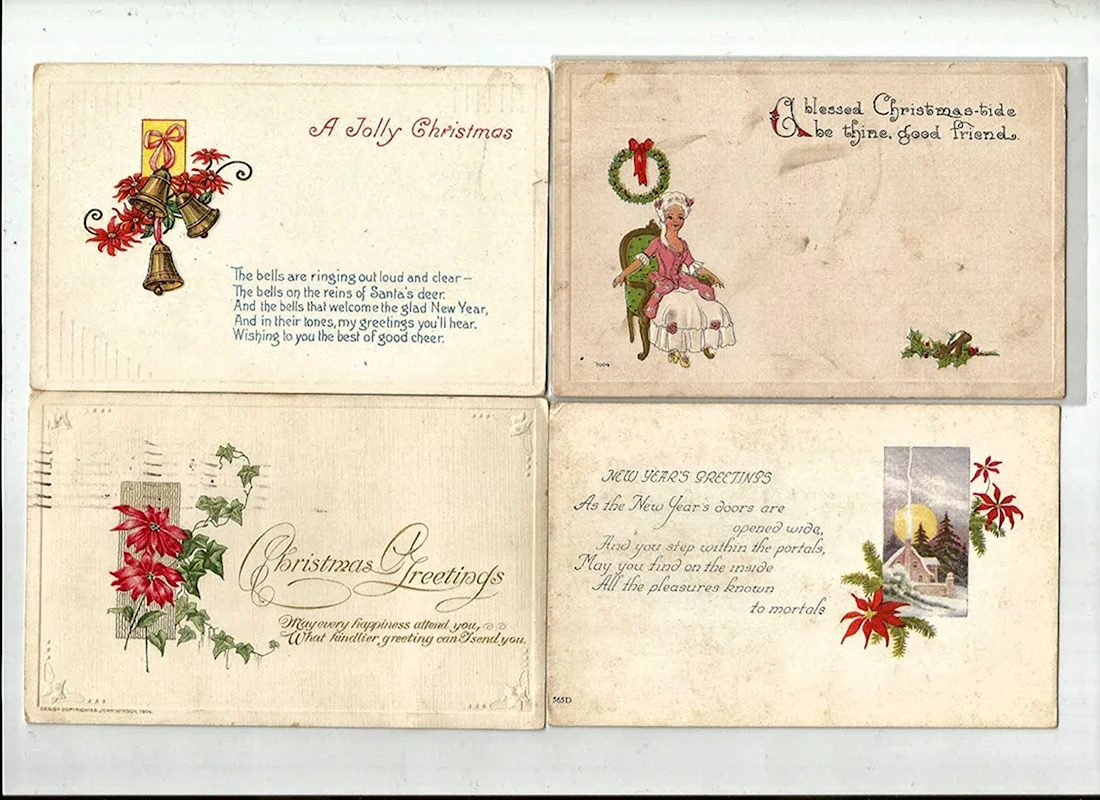 A Jolly Christmas
The bells are ringing out loud and clear—
The bells on the reins of Santa's deer.
And the bells that welcome the glad New Year,
And in their tones, my greetings you'll hear.
Wishing to you the best of good cheer.
A blessed Christmas-tide
be thine, good friend.
7004
Christmas Greetings
May every happiness attend you,
What kindlier greeting can I send you.
DESIGN COPYRIGHTED, JOHN WINSCH, 1914.
NEW YEAR'S GREETINGS
As the New Year's doors are
opened wide,
And you step within the portals,
May you find on the inside
All the pleasures known
to mortals
565D